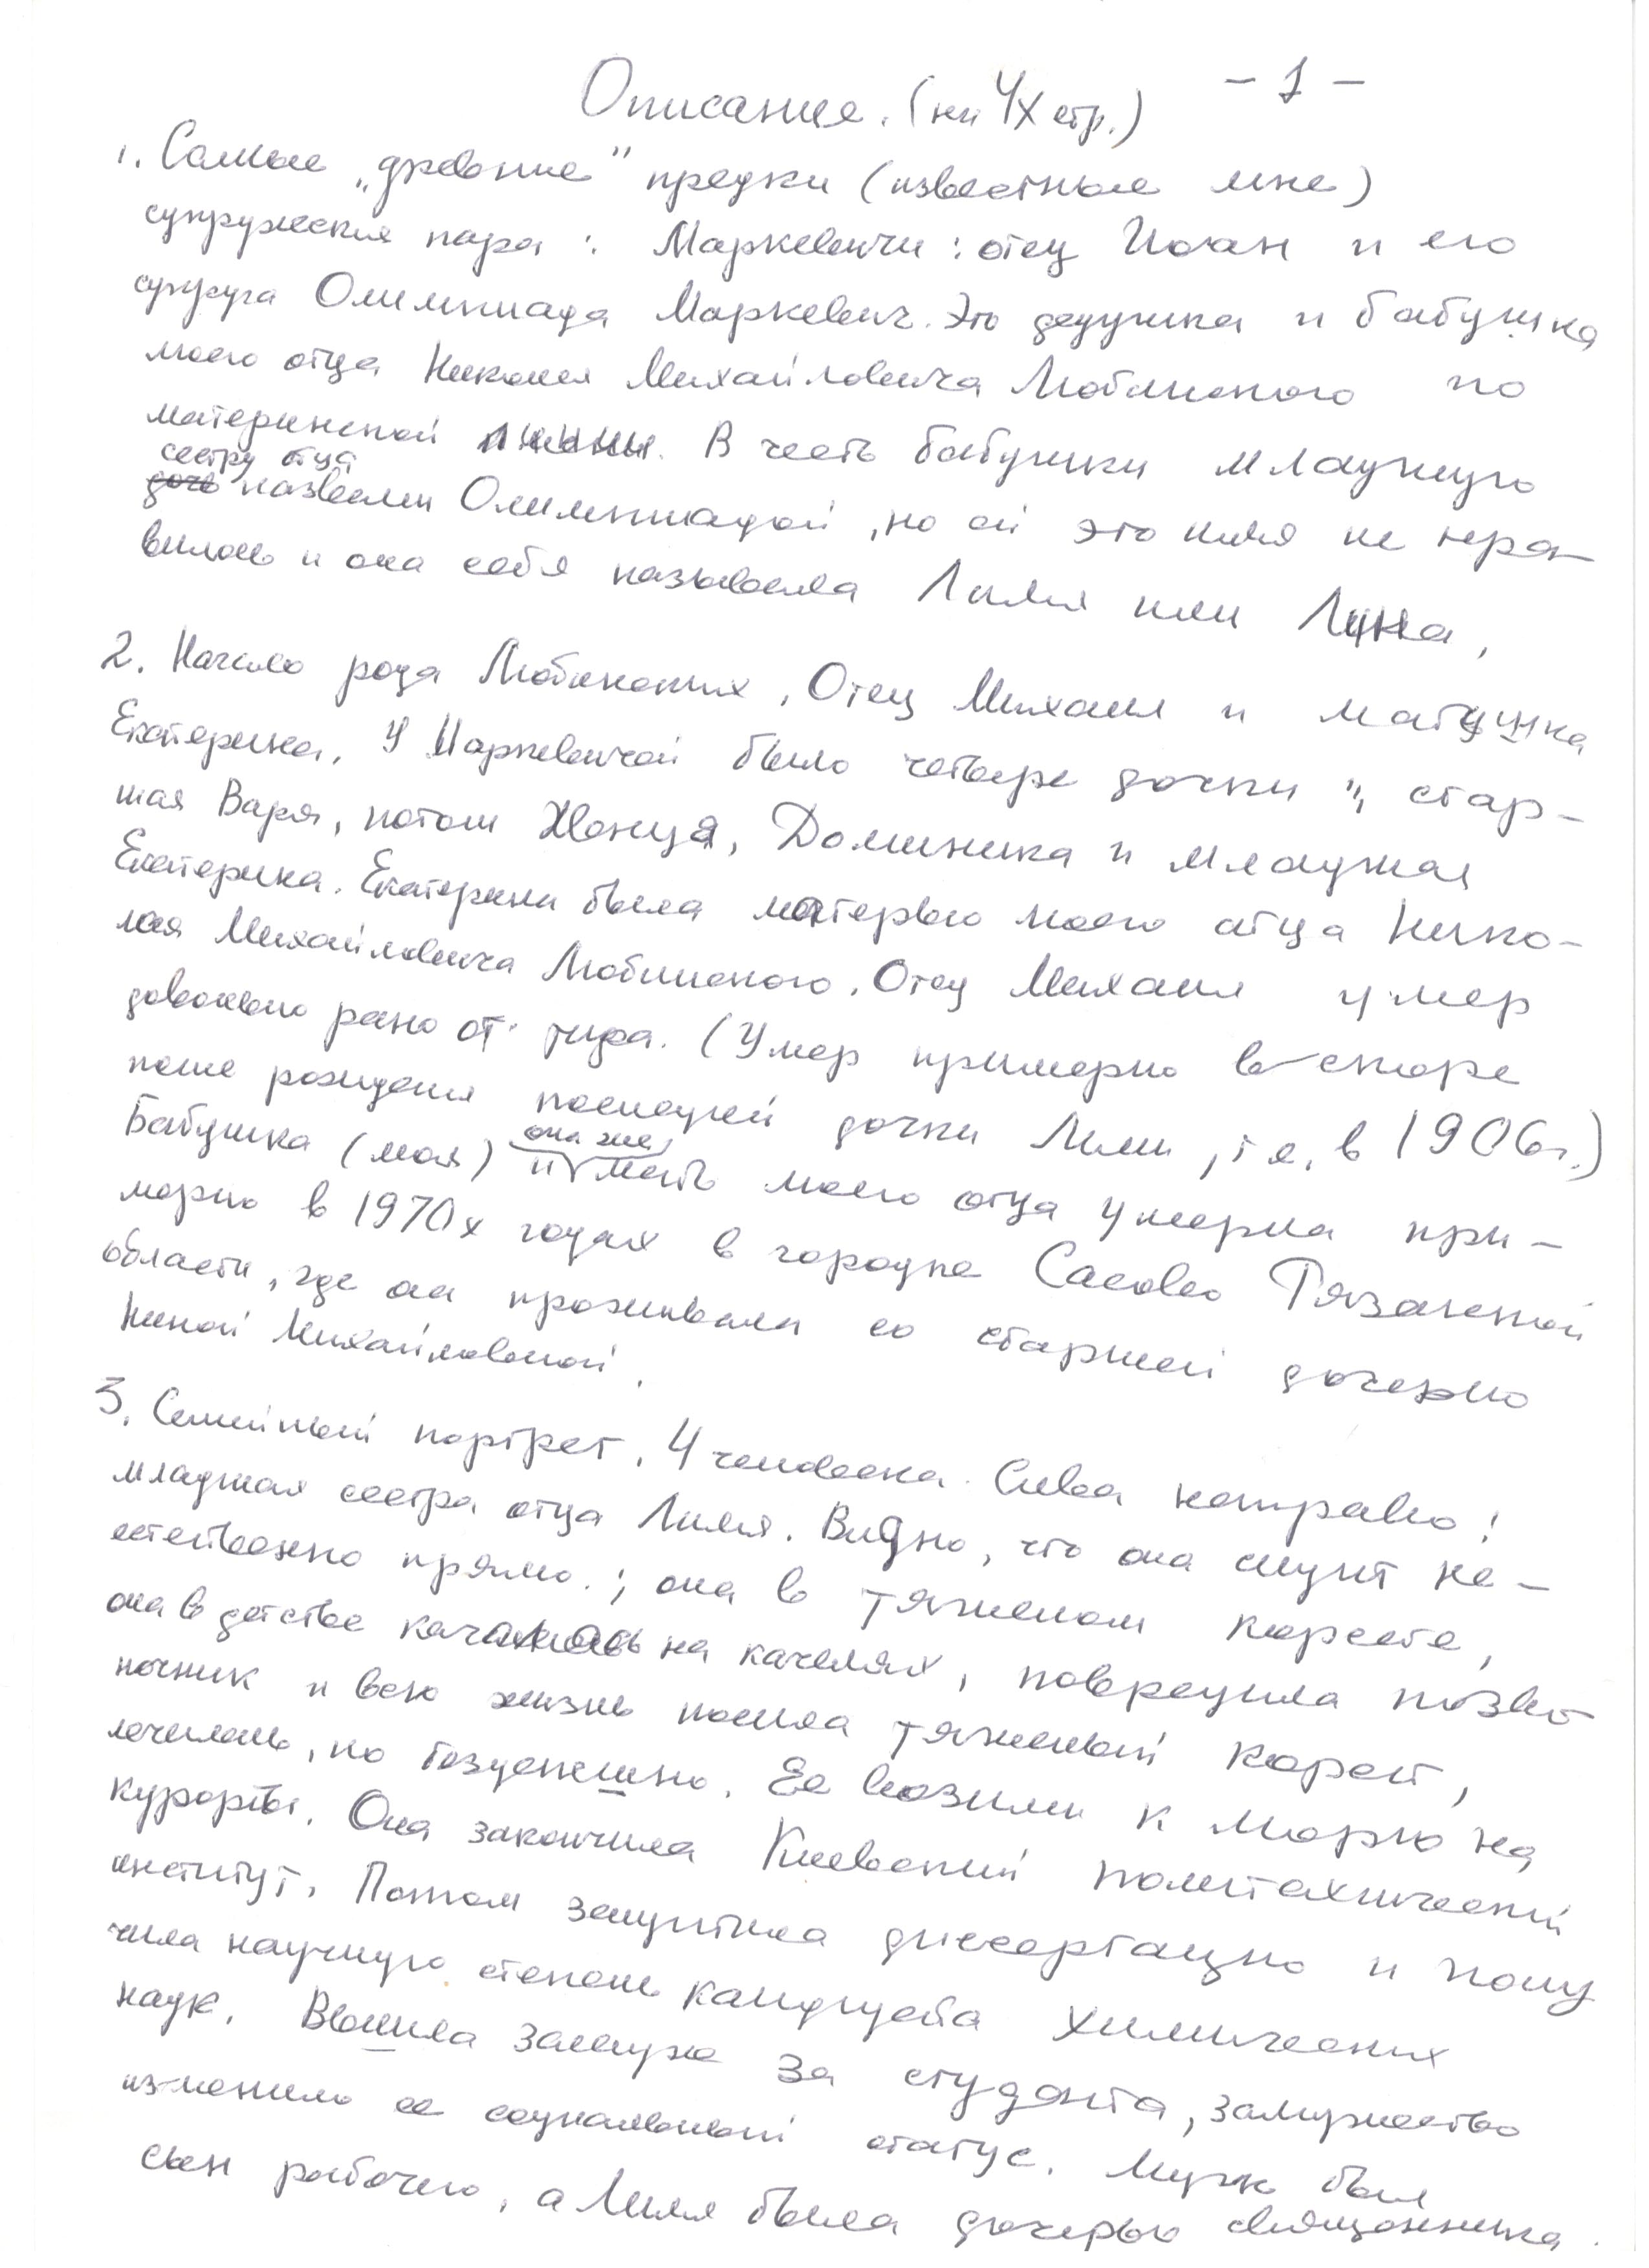 Описание. (на 4х стр.) - 1 -
1. Самые „древние" предки (известные мне)
супружеская пара: Маркевичи: отец Иоан и его
супруга Олимпиада Маркевич. Это дедушка и бабушка
моего отца Николая Михайловича Любинского по
материнской линии. В честь бабушки младшую
сестру отца
дочь назвали Олимпиадой, но ей это имя не нра-
вилось и она себя называла Лиля или Лина,
2. Начало рода Любинских, Отец Михаил и матушка
Екатерина. У Маркевичей было четыре дочки: стар-
шая Варя, потом Ксенця, Доминика и младшая
Екатерина. Екатерина была матерью моего отца Нико-
лая Михайловича Любинского. Отец Михаил умер
довольно рано от тифа. (Умер примерно вскоре
после рождения последней дочки Лили, т.е. в 1906г.)
Бабушка (моя) и она же мать моего отца умерла при-
мерно в 1970х годах в городке Сасово Рязанской
области, где она проживала со старшей дочерью
Ниной Михайловной.
3. Семейный портрет. 4 человека. Слева направо:
младшая сестра отца Лиля. Видно, что она сидит не-
естественно прямо.; она в тяжелом корсете,
она в детстве качалась на качелях, повредила позво
ночник и всю жизнь носила тяжелый корсет,
лечилась, но безуспешно. Ее возили к морю на
курорты. Она закончила Киевский политехнический
институт. Потом защитила диссертацию и полу
чила научную степень кандидата химических
наук. Вышла замуж за студента, замужество
изменило ее социальный статус. Муж был
сын рабочего, а Лиля была дочерью священника.